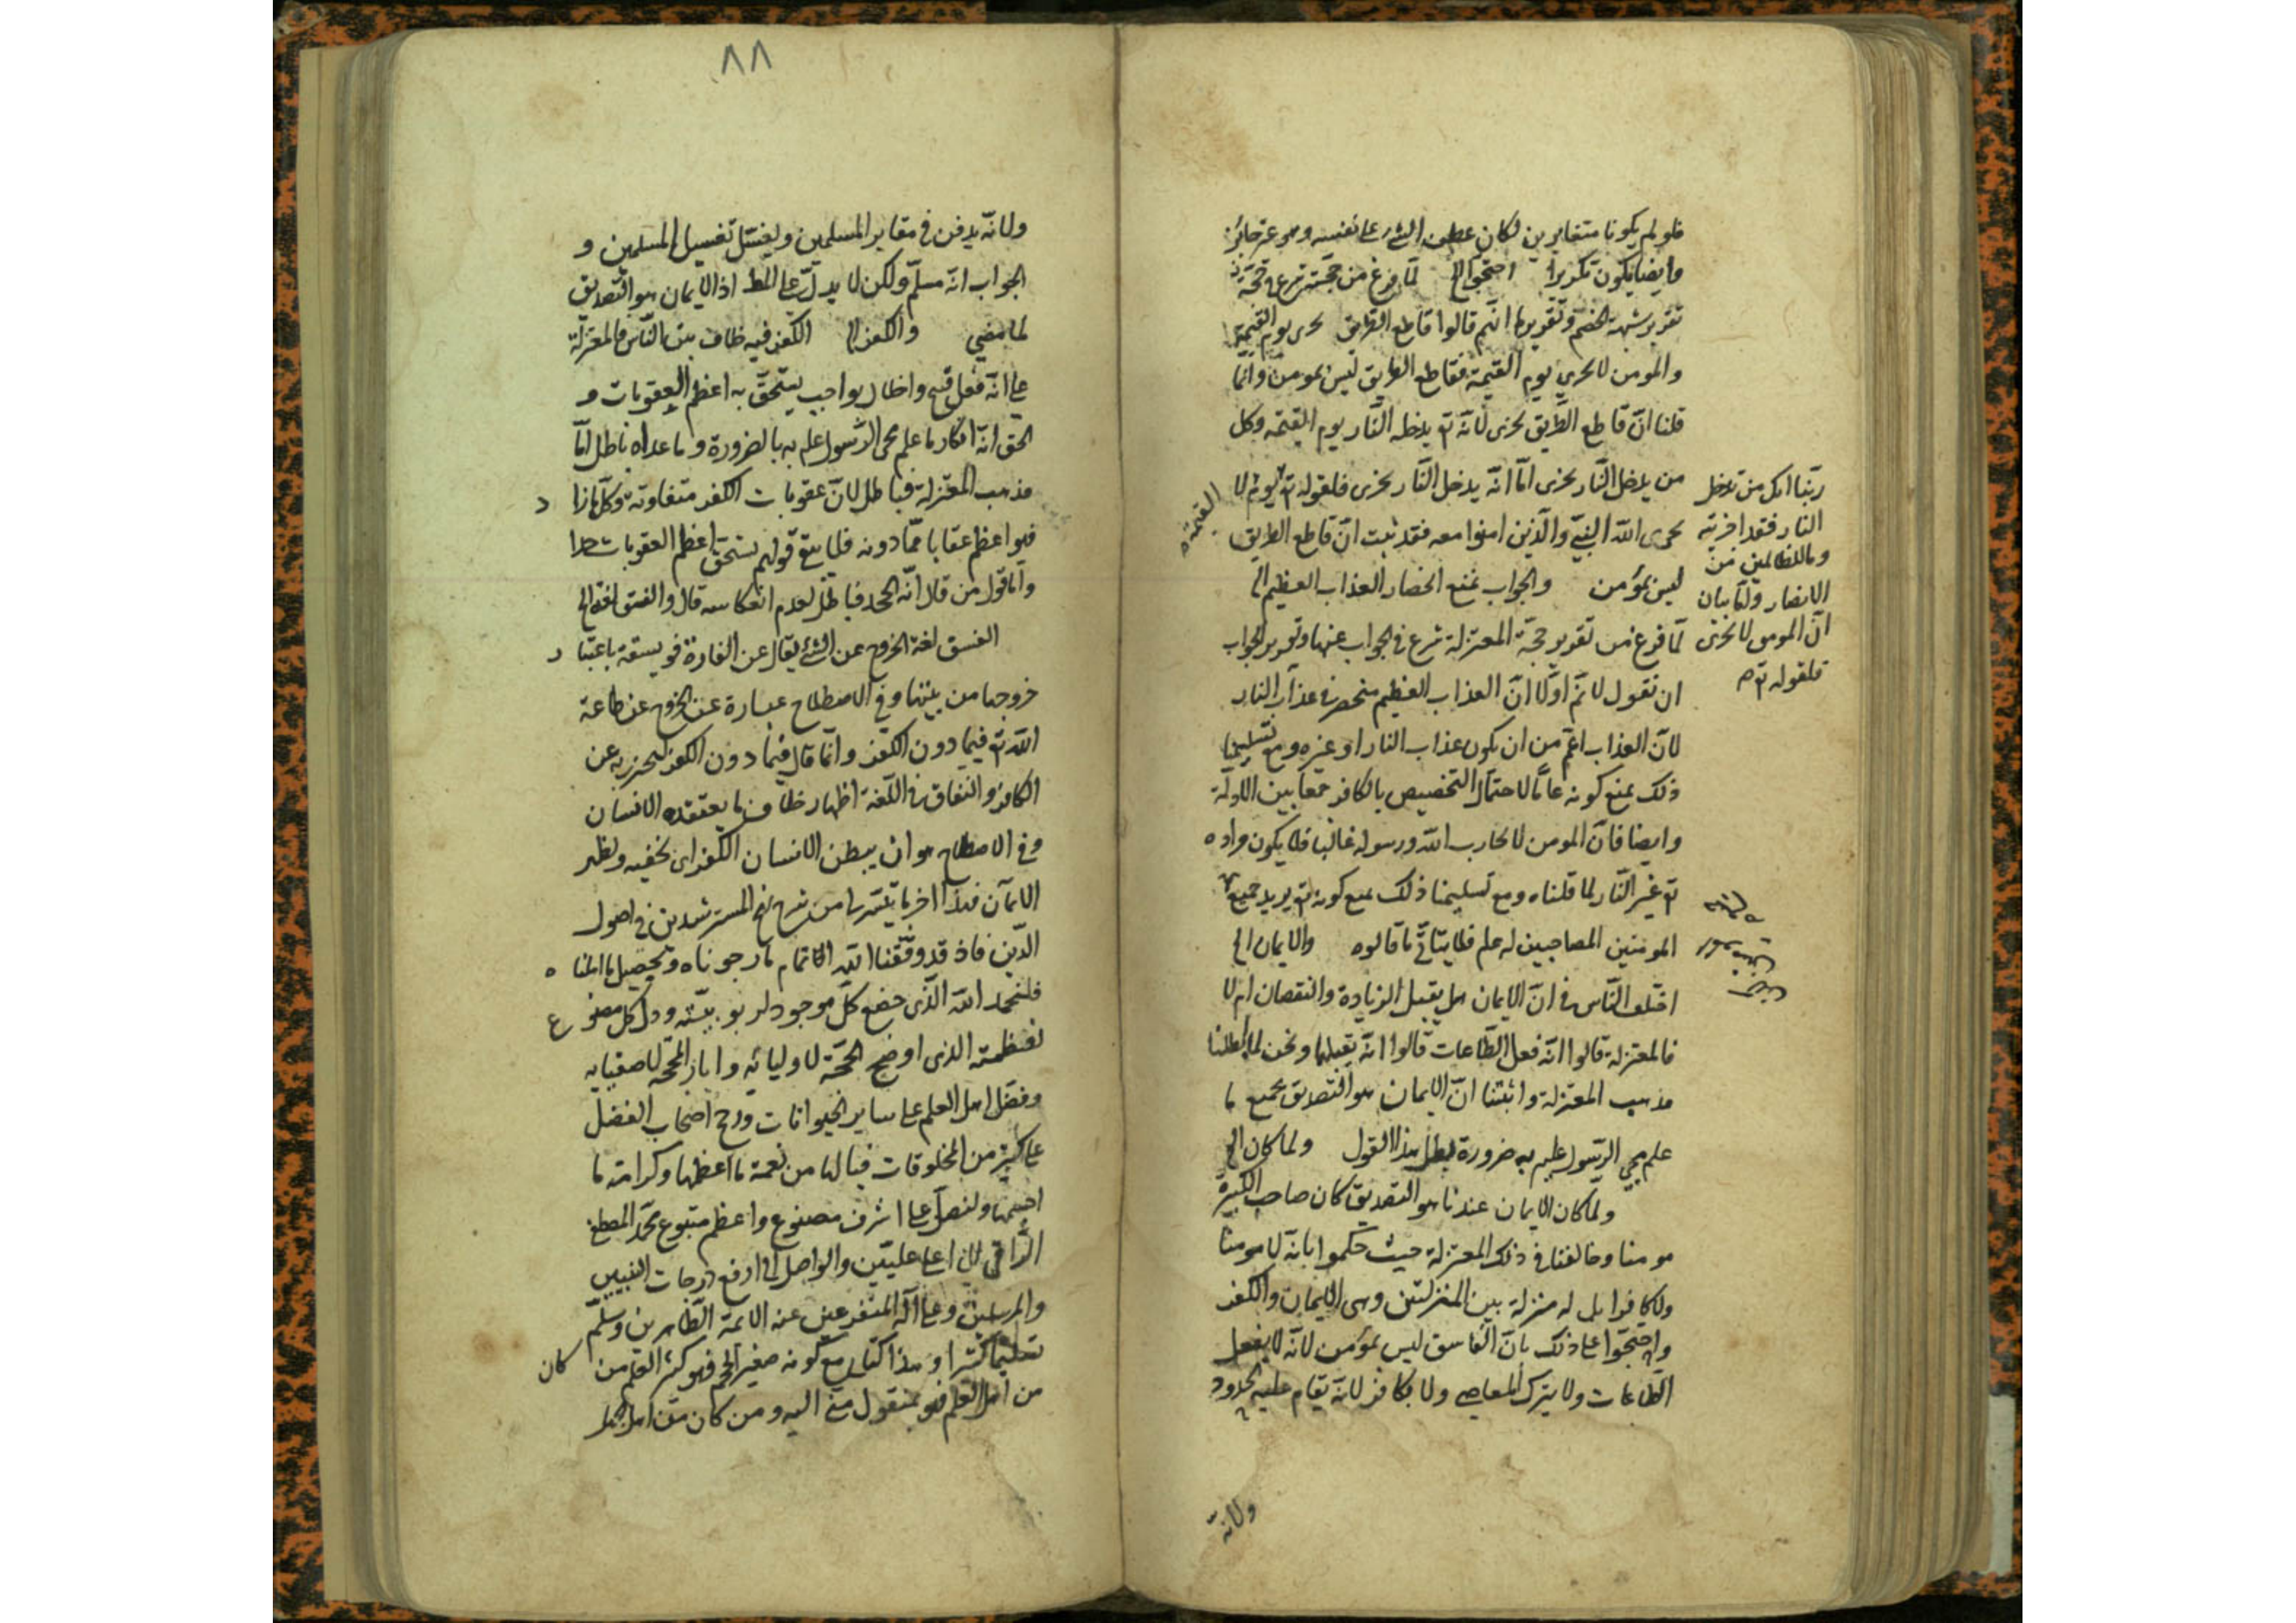 فلو لم يكونا متغايرين لكان عطف الشئ على نفسه وهو غير جائز
وايضا يكون تكريرا احتجوا الخ لما فرغ من حجته شرع في
تقرير شبهة الخصم وتقريرها انهم قالوا قاطع الطريق يخزى يوم القيمة
والمومن لا يخزى يوم القيمة فقاطع الطريق ليس بمومن وانما
قلنا ان قاطع الطريق يخزى لانه تع يدخله النار يوم القيمة وكل
من يدخل النار يخزى اما انه يدخل النار يخزى فلقوله تع يوم لا
يخزى الله النبي والذين امنوا معه فقد ثبت ان قاطع الطريق
ليس بمؤمن والجواب بمنع انحصار العذاب العظيم الخ
لما فرغ من تقرير حجة المعتزلة شرع في الجواب عنها وتقرير الجواب
ان نقول لا نم اولا ان العذاب العظيم منحصر في عذاب النار
لان العذاب اعم من ان يكون عذاب النار او غيره ومع تسليمنا
ذلك نمنع كونه عاما لاحتمال التخصيص بالكافر جمعا بين الادلة
وايضا فان المومن لا يحارب الله ورسوله غالبا فلا يكون مراده
تع غير النار لما قلناه ومع تسليمنا ذلك نمنع كونه تع يريد جميع
المومنين المصاحبين له علم فلا يتاتى ما قالوه والايمان الخ
اختلف الناس في ان الايمان هل يقبل الزيادة والنقصان ام لا
فالمعتزلة قالوا انه فعل الطاعات قالوا انه يقبلها ونحن لما ابطلنا
مذهب المعتزلة واثبتنا ان الايمان هو التصديق بجميع ما
علم مجئ الرسول علم به ضرورة بطل هذا القول ولما كان الخ
ولما كان الايمان عندنا هو التصديق كان صاحب الكبيرة
مومنا وخالفنا في ذلك المعتزلة حيث حكموا بانه لا مومنا
ولا كافرا بل له منزلة بين المنزلتين وهى الايمان والكفر
واحتجوا على ذلك بان الفاسق ليس بمؤمن لانه لا يفعل
الطاعات ولا يترك المعاصي ولا بكافر لانه تقام عليه الحدود
ولانه
القيمة
ربنا انك من تدخل
النار فقد اخزيته
وما للظالمين من
الانصار واما بيان
ان المومن لا يخزى
فلقوله تع
٨٨
ولانه يدفن في مقابر المسلمين ويغسل تغسيل المسلمين و
الجواب انه مسلم ولكن لا يدل على المط اذ الايمان هو التصديق
لما مضى والكفر الخ الكفر فيه خلاف بين الناس فالمعتزلة
على انه فعل قبيح واخلال بواجب يستحق به اعظم العقوبات و
الحق انه انكار ما علم مجئ الرسول علم به بالضرورة وما عداه باطل اما
مذهب المعتزلة فباطل لان عقوبات الكفر متفاوتة وكل ما زاد
فهو اعظم عقابا مما دونه فلا يبقى قولهم يستحق اعظم العقوبات
واما قول من قال انه الجحد فباطل لعدم انعكاسه قال والفسق لغة الخ
الفسق لغة الخروج عن الشئ يقال عن الفارة فويسقة باعتبار
خروجها من بيتها وفي الاصطلاح عبارة عن الخروج عن طاعة
الله تع فيما دون الكفر وانما قال فيما دون الكفر ليحترز به عن
الكافر والنفاق في اللغة اظهار خلاف ما يعتقده الانسان
وفي الاصطلاح هو ان يبطن الانسان الكفر اى يخفيه ويظهر
الايمان فهذا اخر ما تيسر لنا من شرح نهج المسترشدين في اصول
الدين فاذ قد وفقنا الله لاتمام ما رجوناه وتحصيل ما املناه
فلنحمد الله الذى خضع كل موجود لربوبيته وذل كل مصنوع
لعظمته الذى اوضح الحجة لاوليائه وابان المحجة لاصفيائه
وفضل اهل العلم على ساير الحيوانات ورجح اصحاب الفضل
على كثير من المخلوقات فيالها من نعمة ما اعظمها وكرامة ما
اجسمها ولنصل على اشرف مصنوع واعظم متبوع محمد المصطفى
الراقي الى اعلى عليين والواصل الى ارفع درجات النبيين
والمرسلين وعلى آله المتفرعين عنه الائمة الطاهرين وسلم
تسليما كثيرا وهذا كتاب مع كونه صغير الحجم فهو كثير العلم من كان
من اهل العلم فهو بمنقول مني اليه ومن كان من اهل